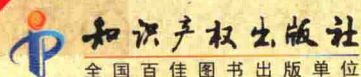 知识产权出版社
全国百佳图书出版单位